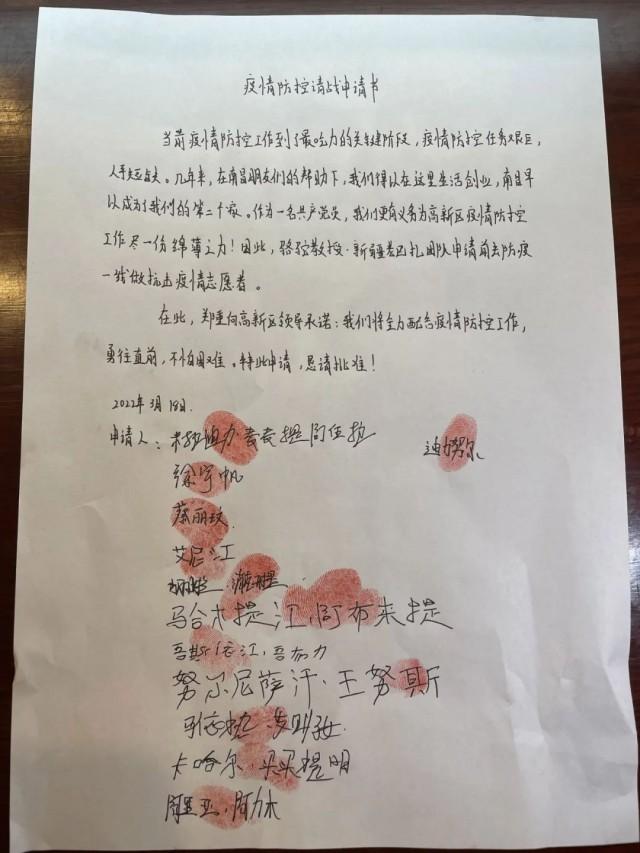 疫情防控请战申请书
当前疫情防控工作到了最吃力的关键阶段，疫情防控任务艰巨，
人手短缺。几年来，在南昌朋友们的帮助下，我们得以在这里生活创业，南昌早
以成为了我们的第二个家。作为一名共产党员，我们更有义务为高新区疫情防控
工作尽一份绵薄之力！因此，骆驼教授·新疆巴扎团队申请前去防疫
一线做抗击疫情志愿者。
在此，郑重向高新区领导承诺：我们将全力配合疫情防控工作，
勇往直前，不怕困难。特此申请，恳请批准！
2022年3月18日.
申请人：
迪力努尔
徐宇帆
蔡丽玟
艾尼江
马合木提江，阿布来提
吾斯依江，吾加力
努尔尼萨汗·王努斯
卡哈尔·买买提明